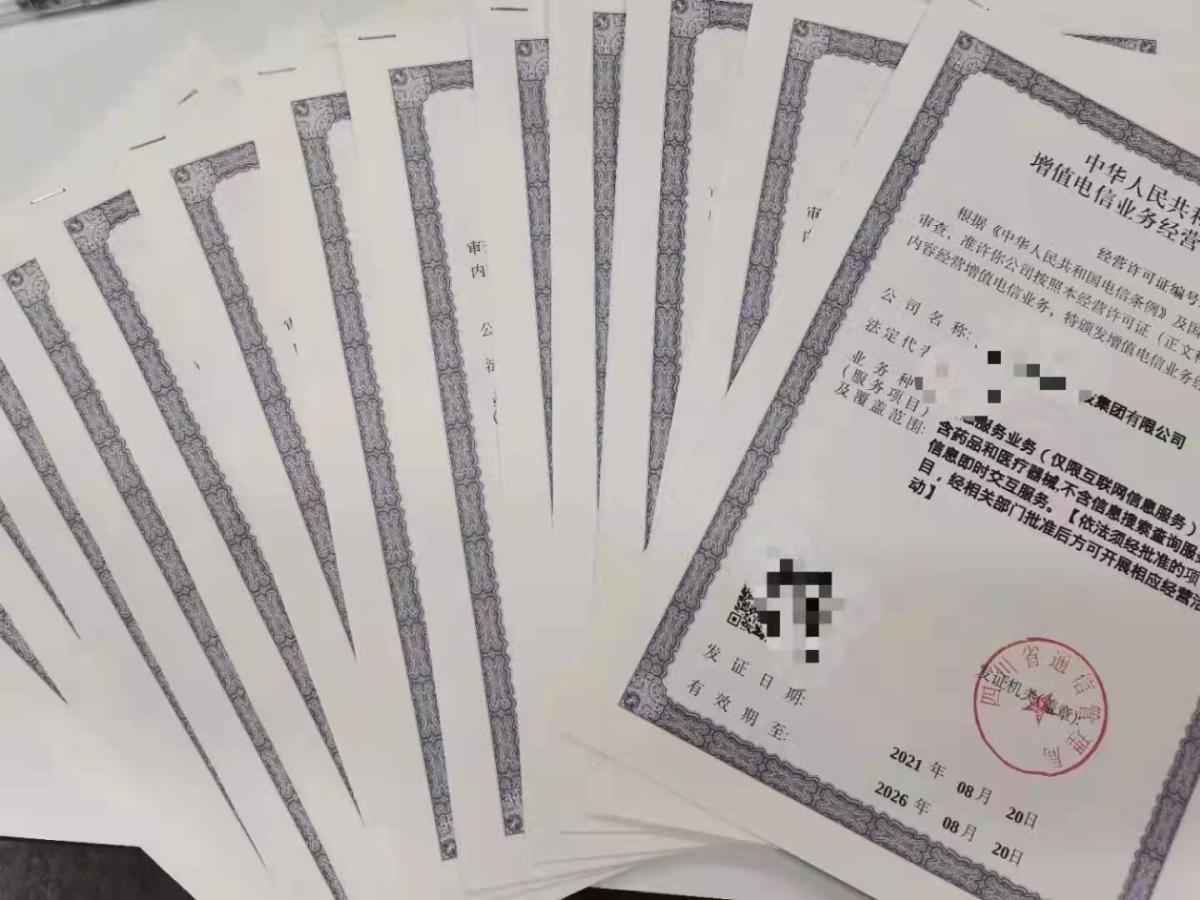 中华人民共和
增值电信业务经营
经营许可证编号
根据《中华人民共和国电信条例》及国
审查，准许你公司按照本经营许可证（正文
内容经营增值电信业务，特颁发增值电信业务经
公司名称：
集团有限公司
法定代表
业务种
（服务项目）
及覆盖范围：
服务业务（仅限互联网信息服务）
含药品和医疗器械，不含信息搜索查询服
信息即时交互服务。【依法须经批准的项
目，经相关部门批准后方可开展相应经营活
动】
发证机关(盖章)：
四川省通信管理局
发证日期：
2021年08月20日
有效期至：
2026年08月20日
审
内
公
法
审
内
审